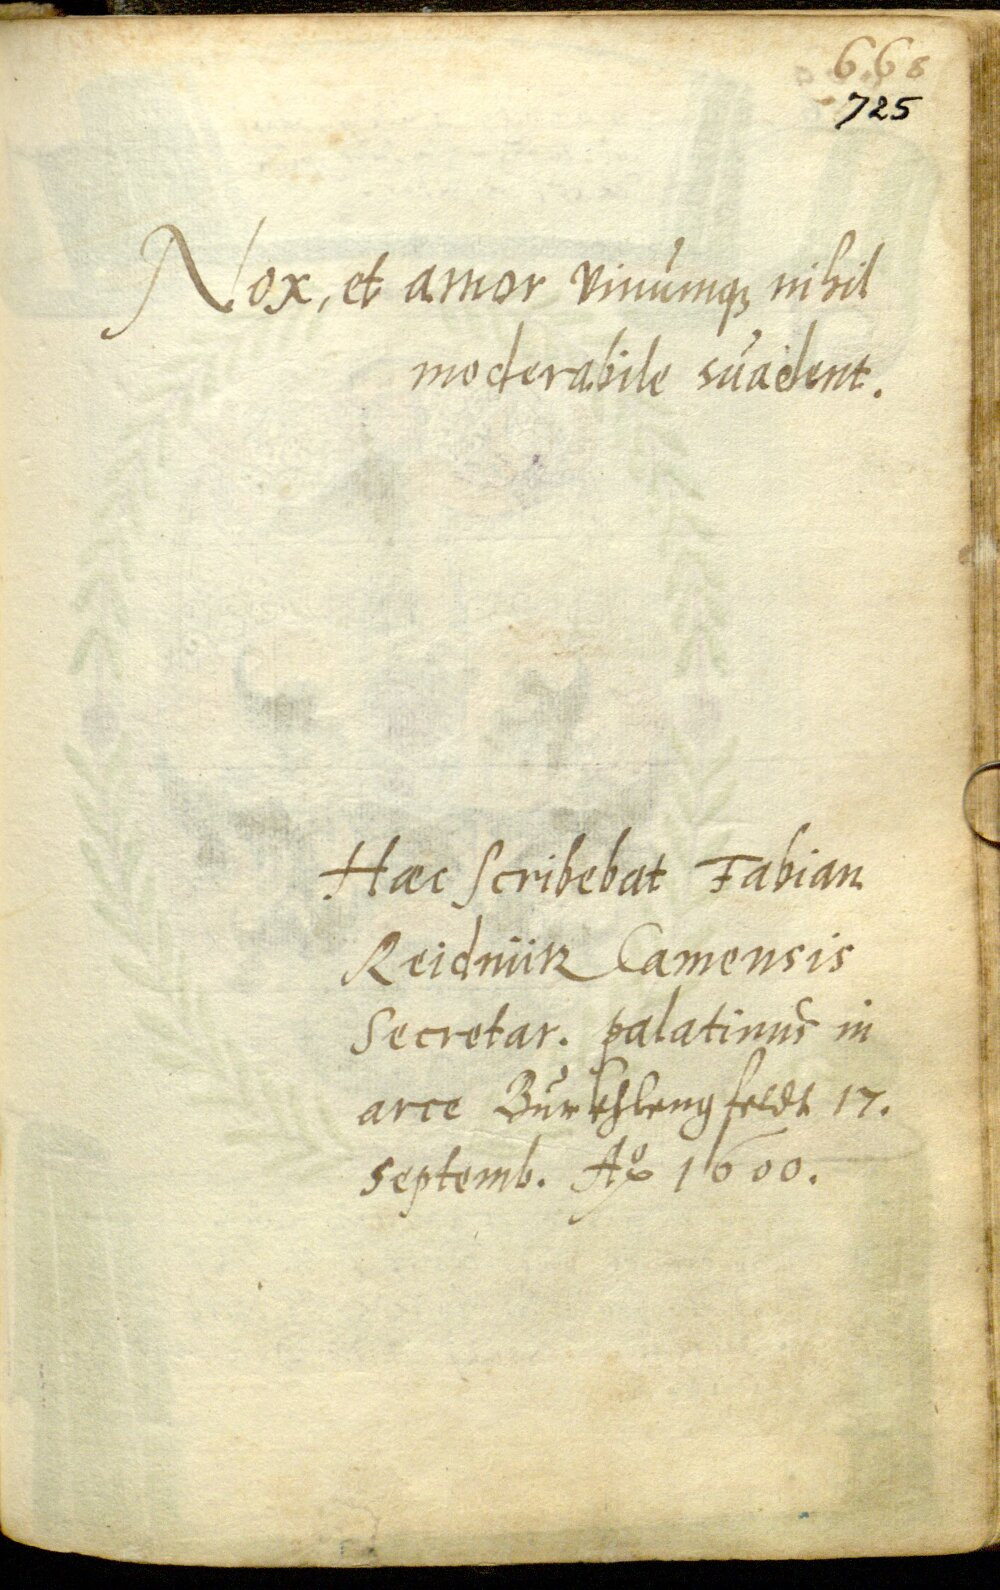 668
725
Nox, et amor vinumq; nihil
moderabile suadent.
Hæc scribebat Fabian
Camensis
Secretar. palatinus in
arce Burkhlengfeldt 17.
septemb. Aº 1600.